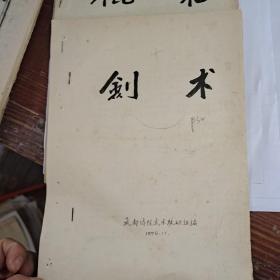 剑术
成都体院武术教研组编
1974.11.